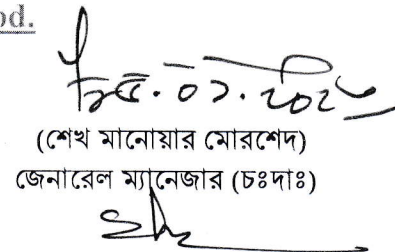 od.
(শেখ মানোয়ার মোরশেদ)
জেনারেল ম্যানেজার (চঃদাঃ)